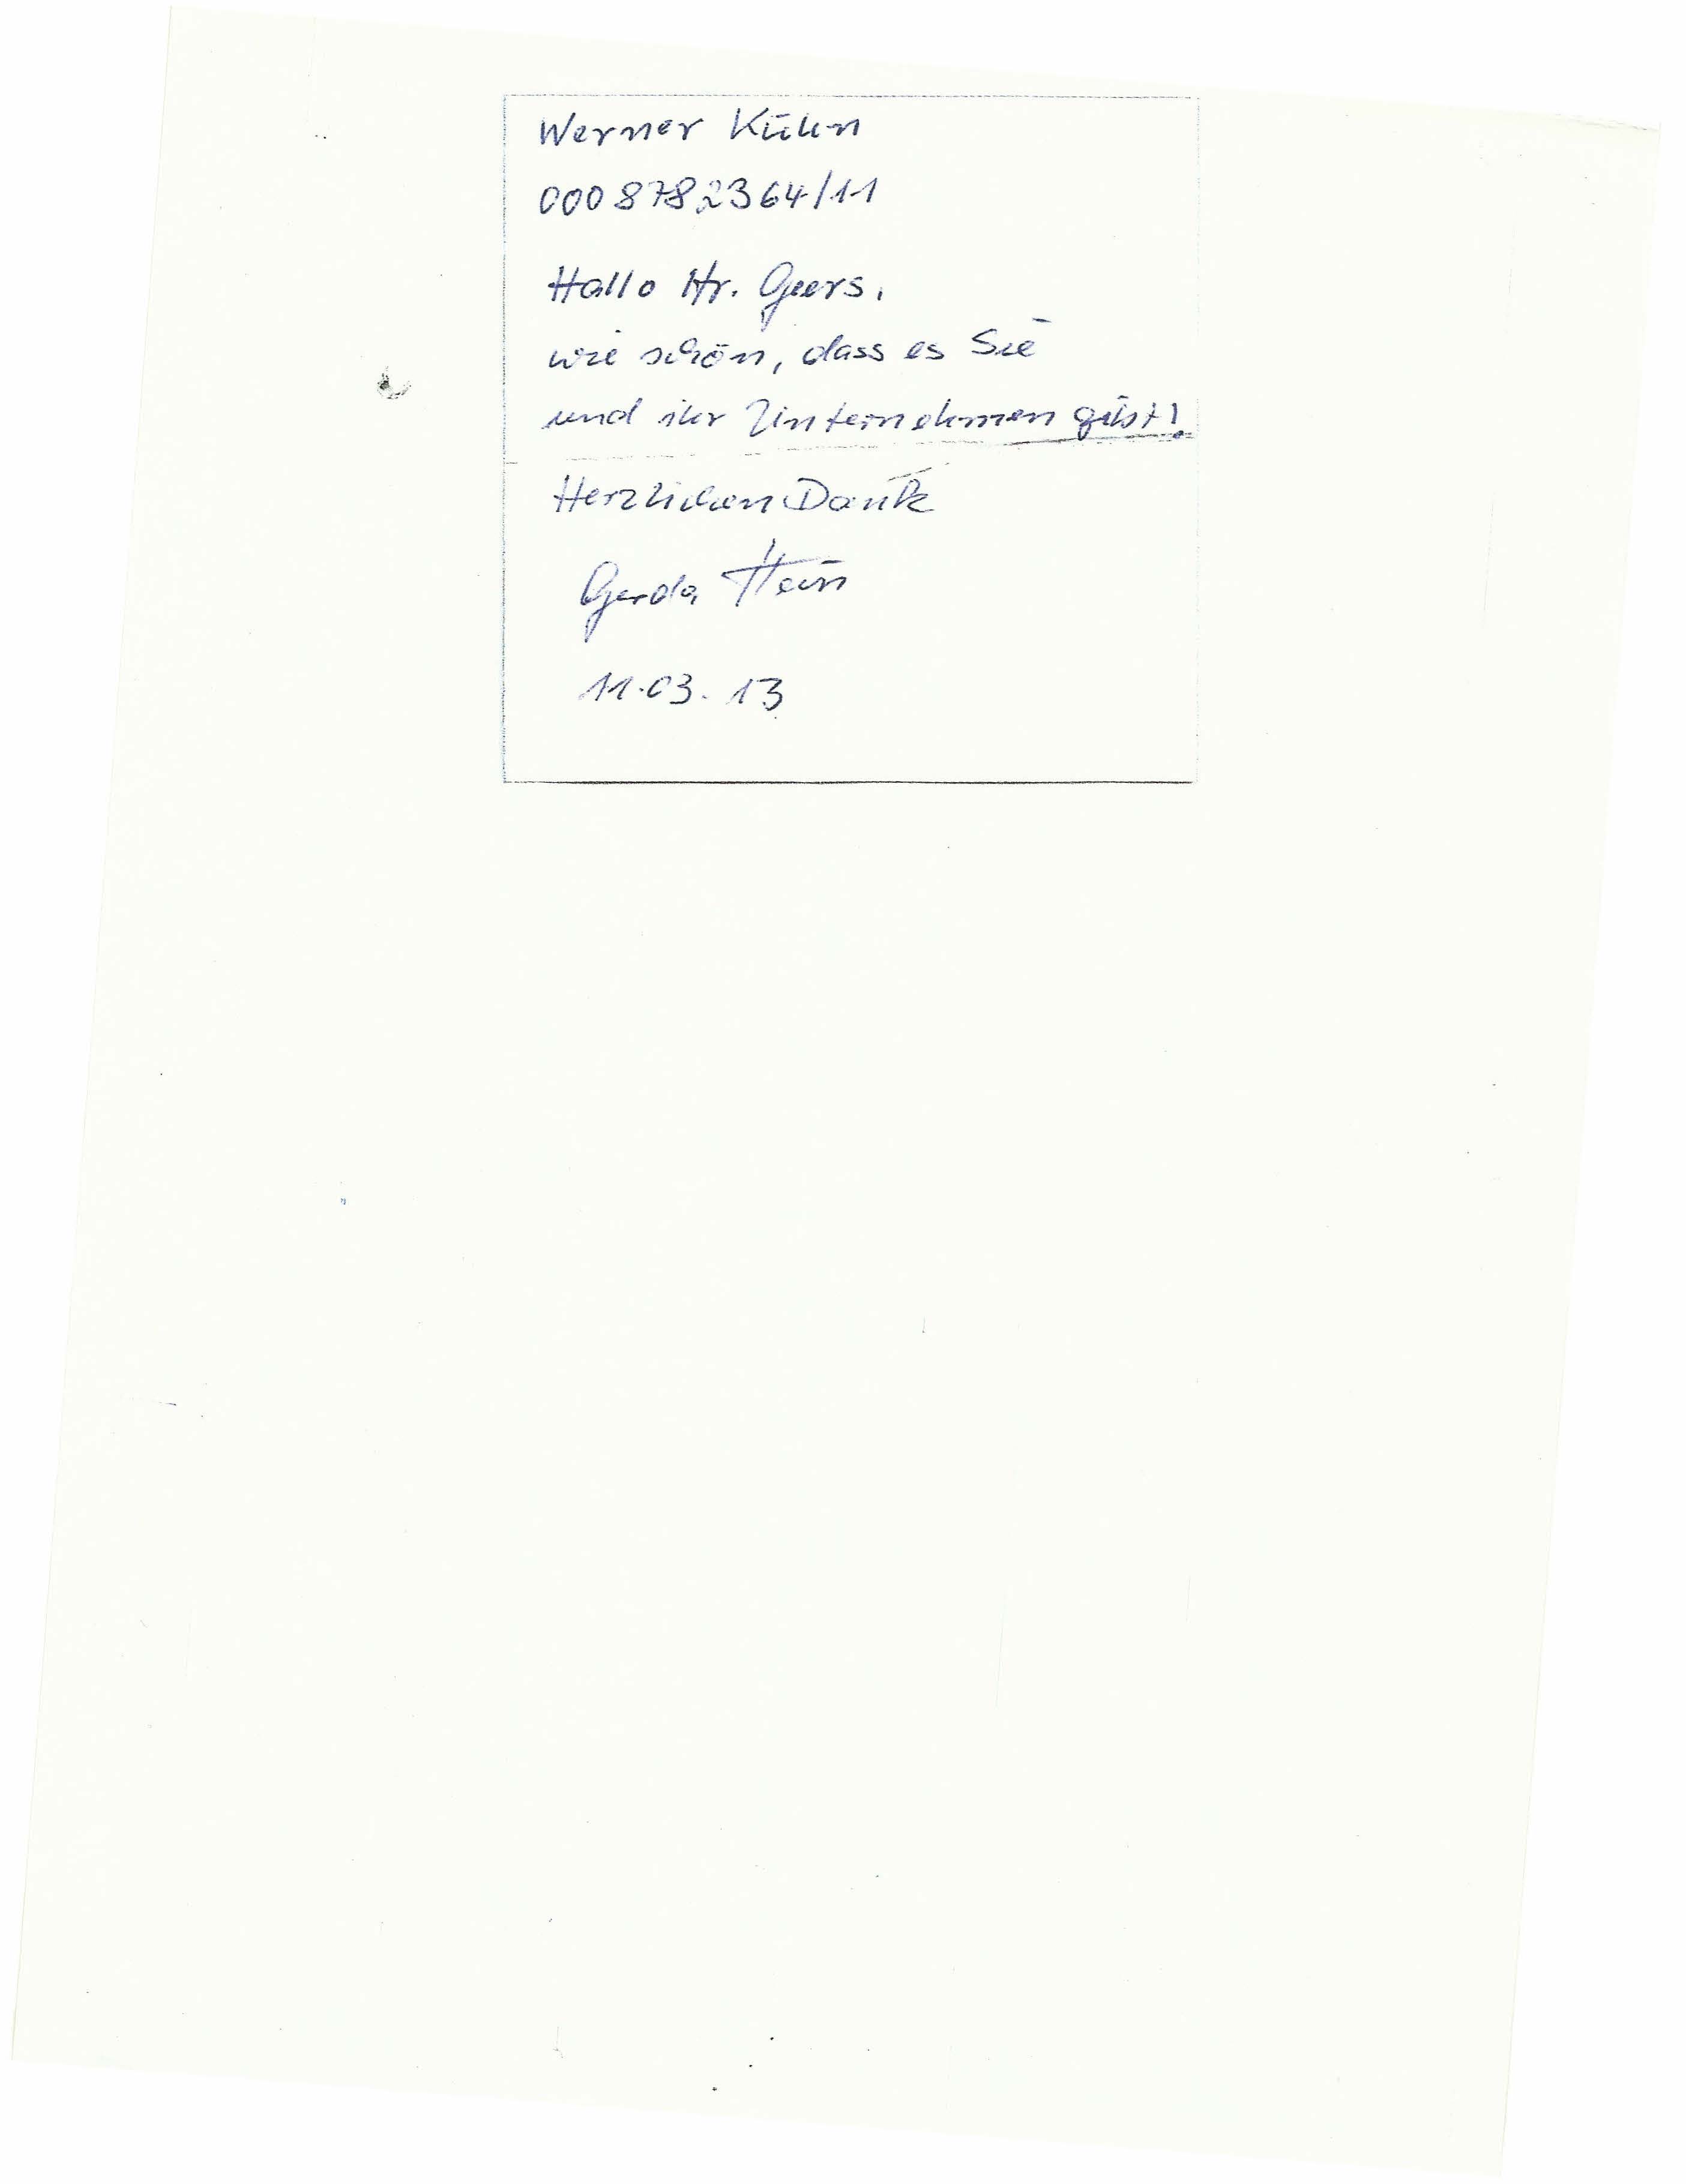 Werner Kühn
0008782364/11
Hallo Hr. Geers,
wie schön, dass es Sie
und ihr Unternehmen gibt!
Herzlichen Dank
Gerda Hein
11.03.13